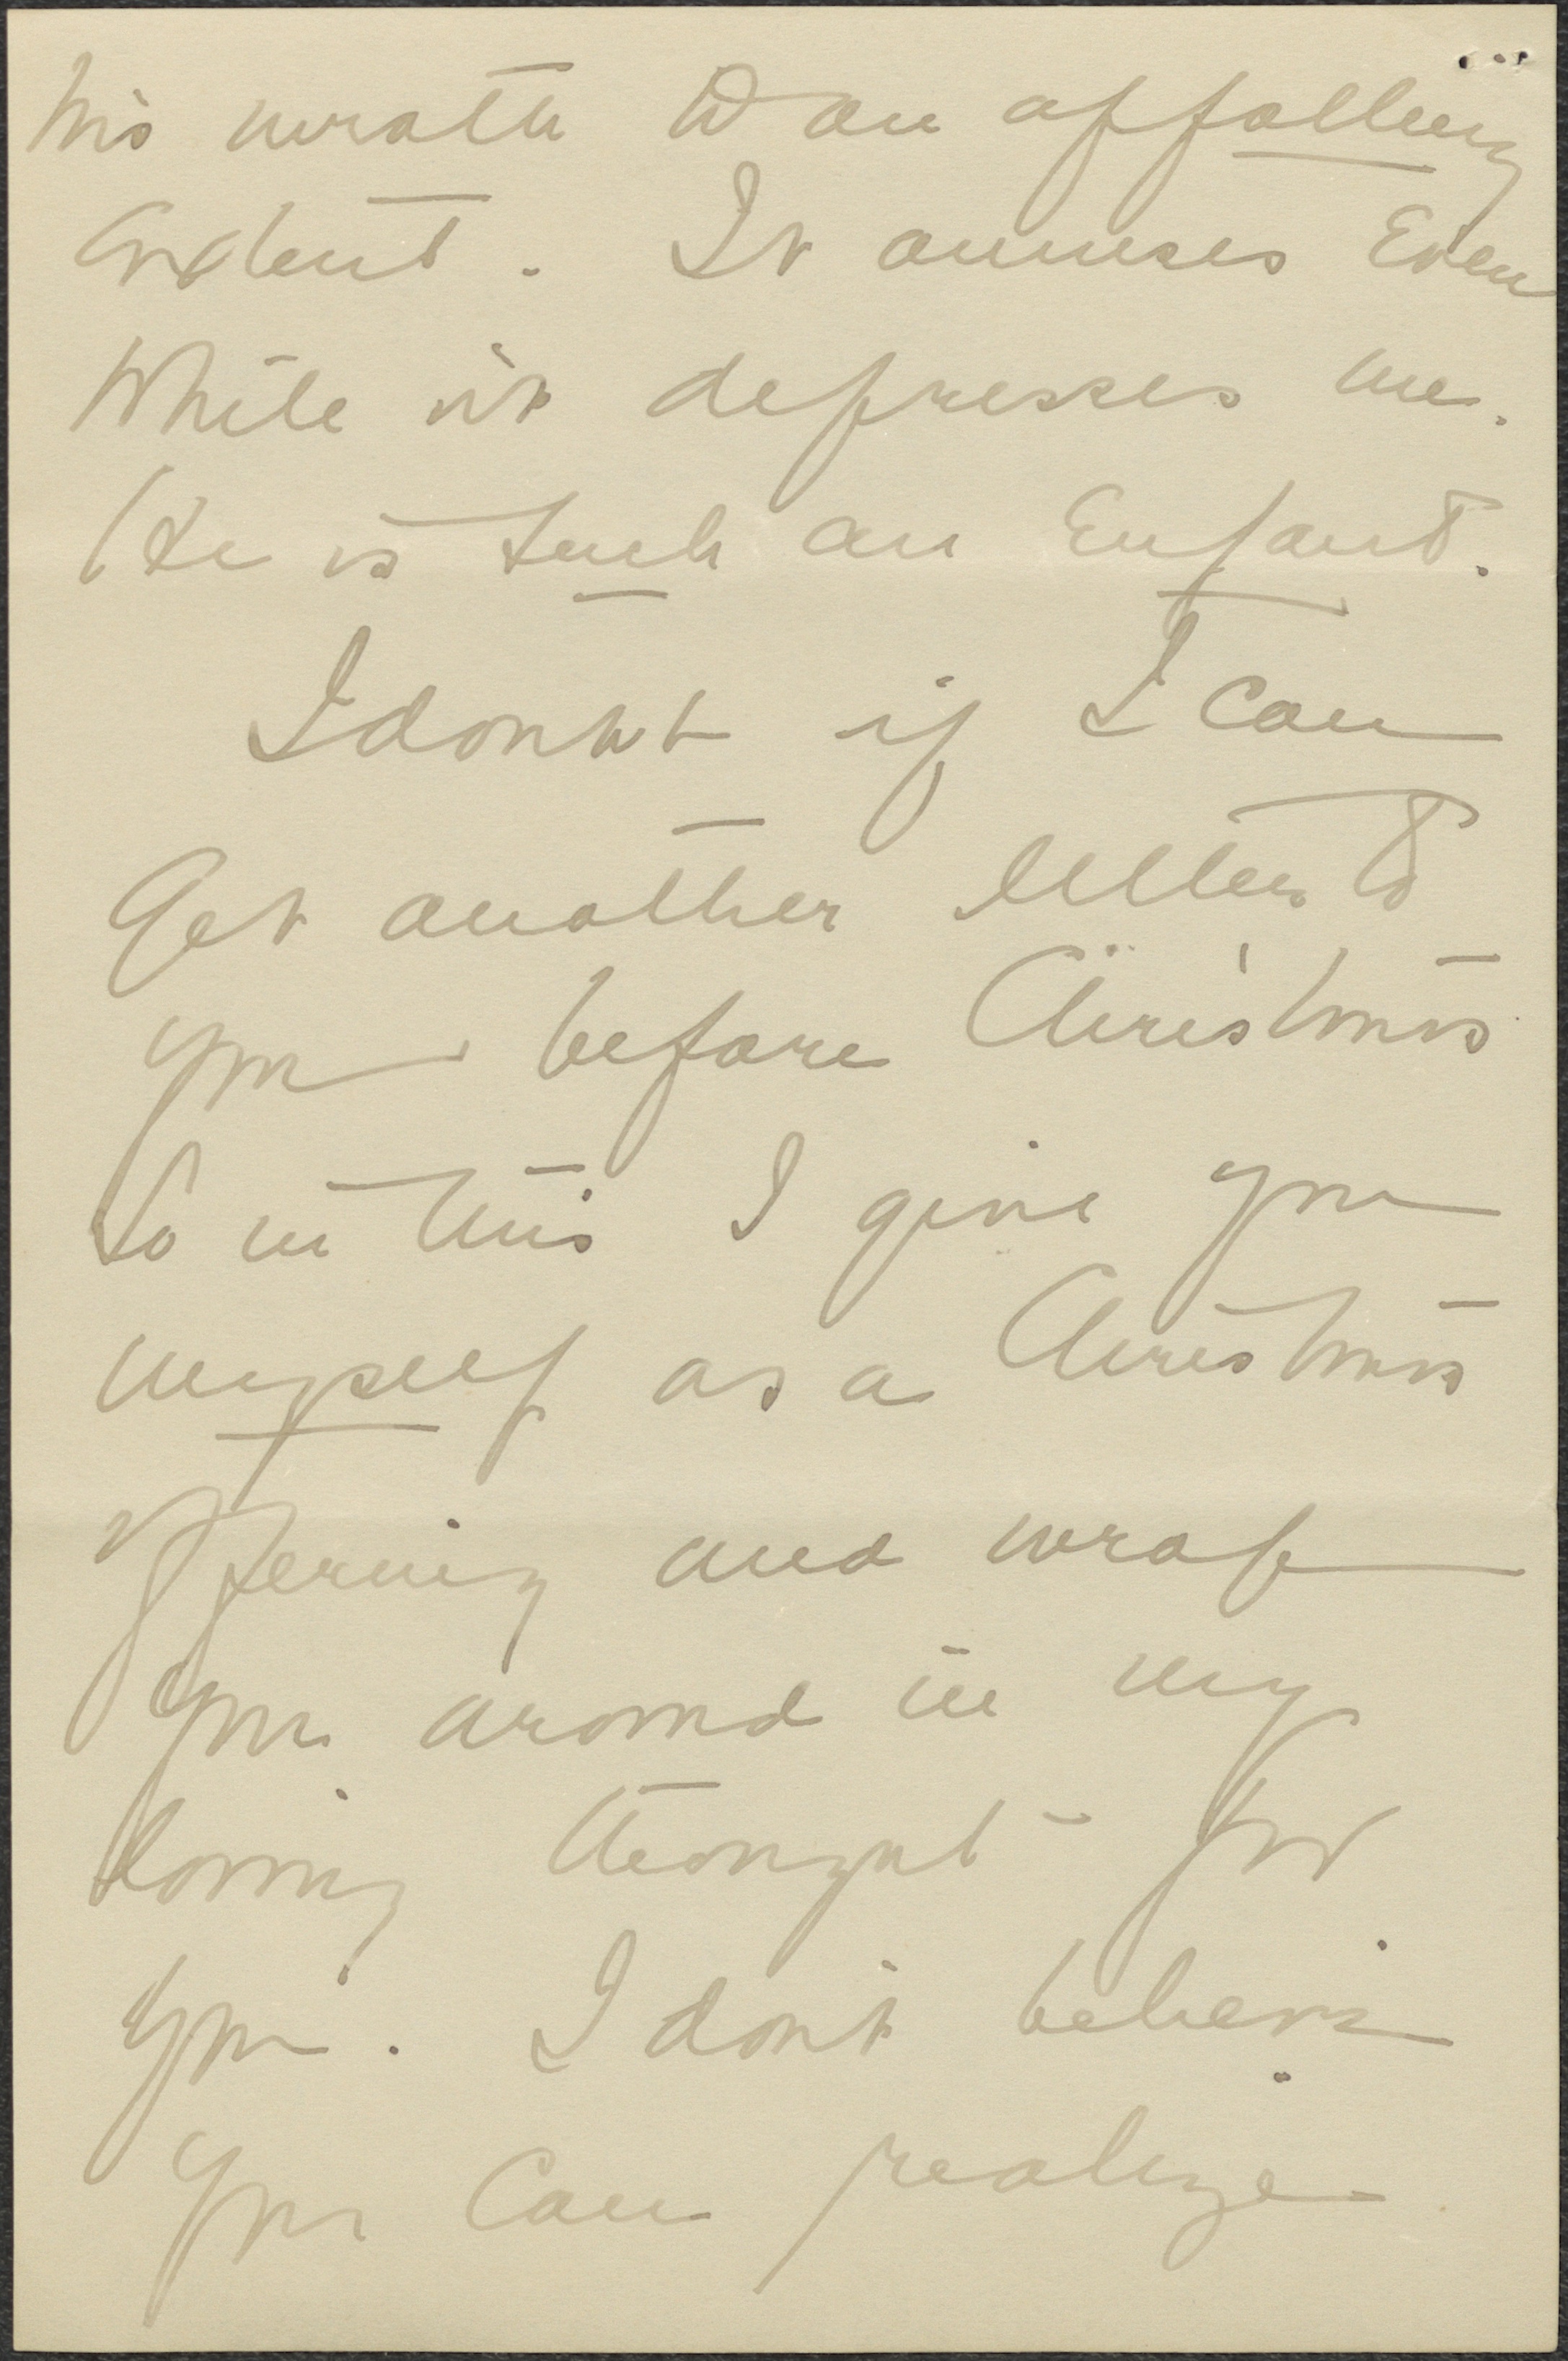 his wrath to an appalling
extent. It amuses even
while it depresses me.
He is such an Enfant.
I doubt if I can
Get another letter to
you before Christmas
So in this I give you
myself as a Christmas
offering and wrap
you around in my
loving thought for
you. I don't believe
you can realize